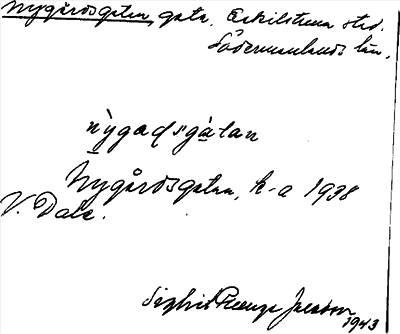 Nygårdsgatan, gata, Eskilstuna stad.
Södermanlands län.
nỳgadsgàtan
Nygårdsgatan, k-a 1938
V. Dala.
Sigfrid Jacobson
1943